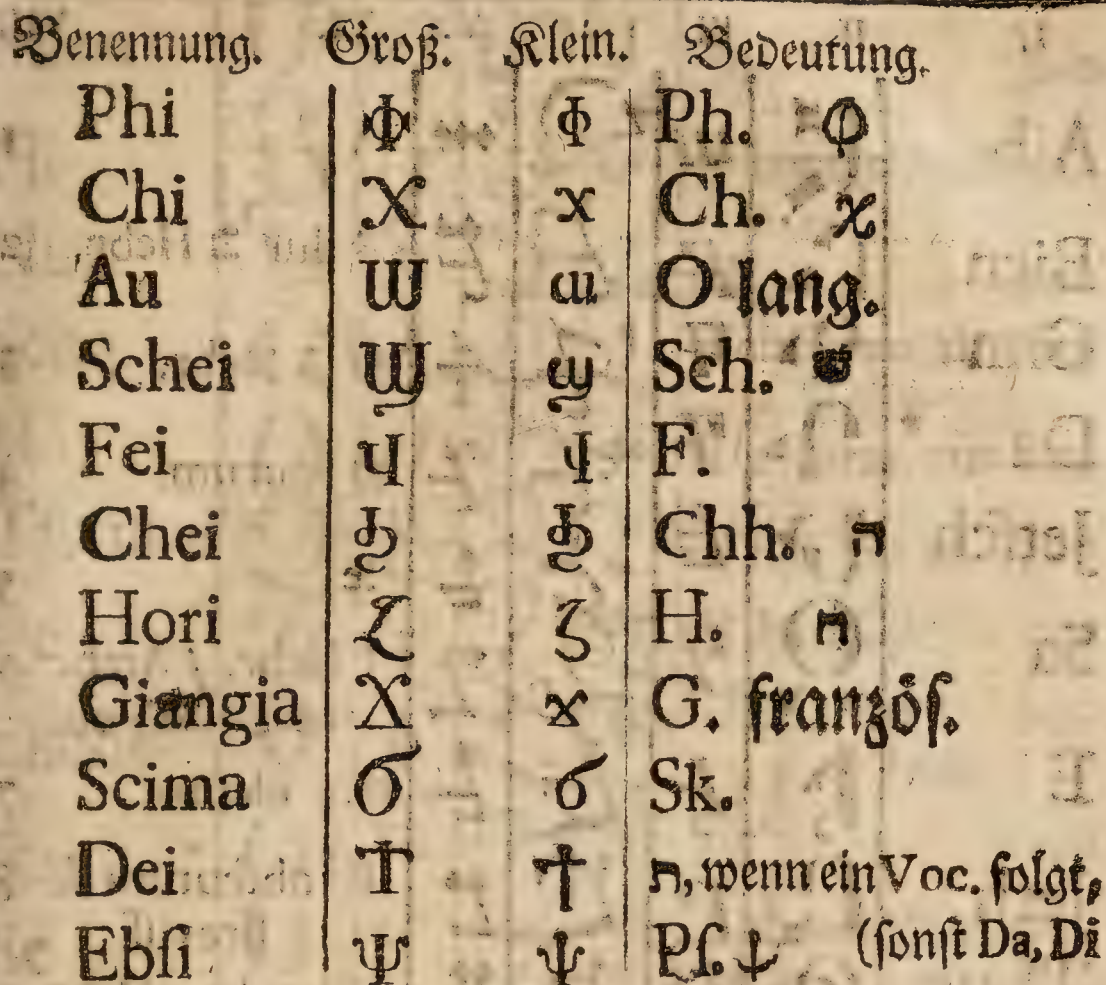 Benennung. Groß: Klein. Bedeutung.
Phi Ⲫ ⲫ Ph. Φ
Chi Ⲭ ⲭ Ch. χ
Au Ⲱ ⲱ O lang.
Schei Ϣ ϣ Sch.
Fei Ϥ ϥ F.
Chei Ϧ ϧ Chh. ה
Hori Ϩ ϩ H. ח
Giangia Ϫ ϫ G. franzöſ.
Scima Ϭ ϭ Sk.
Dei Ϯ ϯ ת, wenn ein Voc. folgt,
Ebſi Ⲯ ⲯ Pſ. ψ (ſonſt Da, Di